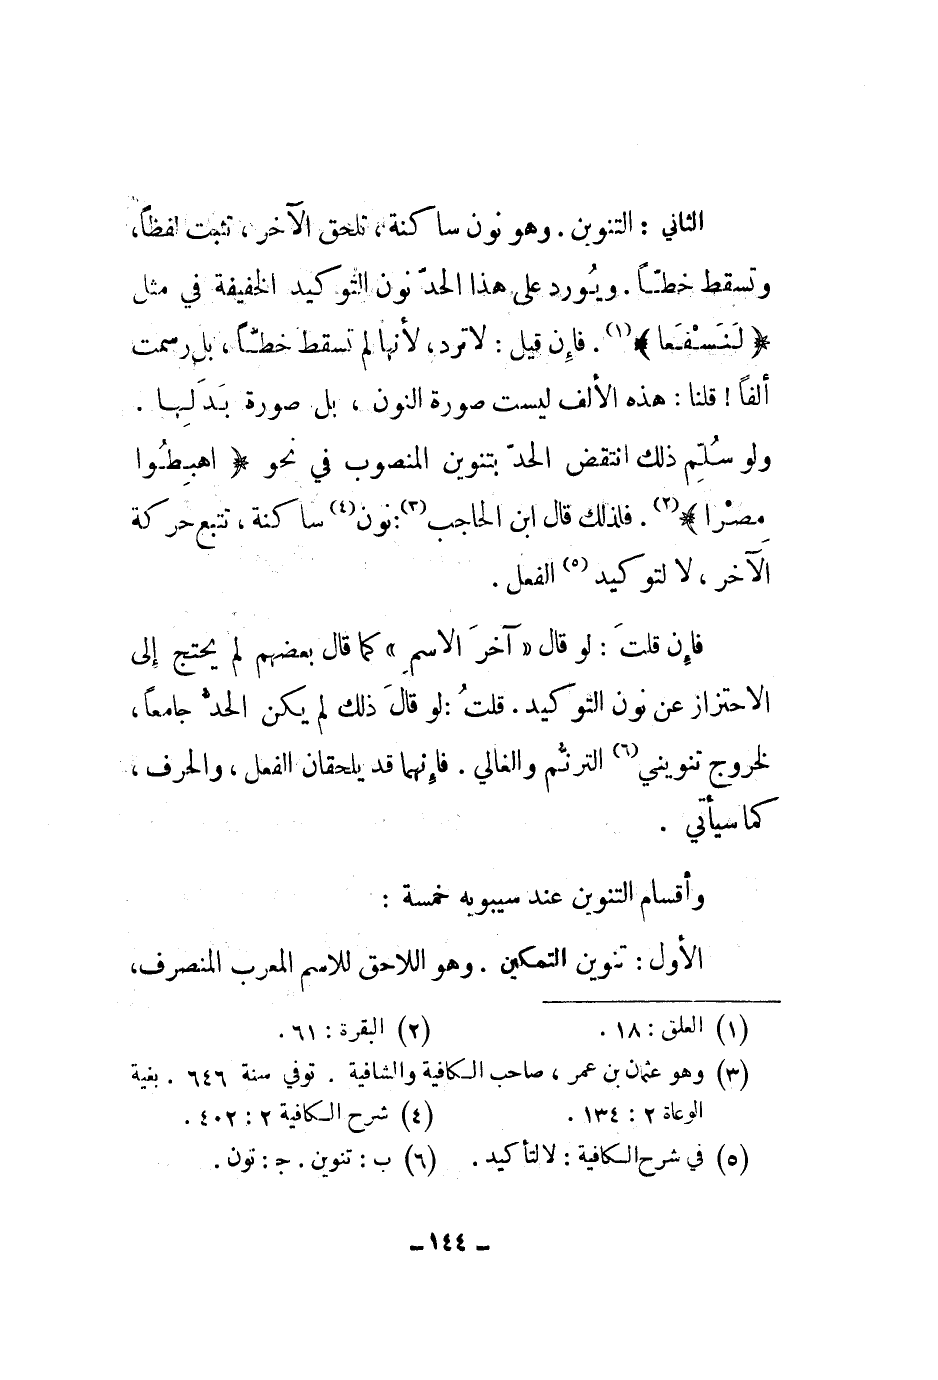 الثاني : التنوين . وهو نون ساكنة، تلحق الآخر ، تثبت لفظاً،
وتسقط خطـّـاً . ويُورد على هذا الحدّ نون التوكيد الخفيفة في مثل
﴿ لَنَسْفَعا ﴾(١) . فإن قيل : لا ترد، لأنها لم تسقط خطـّـاً ، بل رسمت
ألفاً ! قلنا : هذه الألف ليست صورة النون ، بل صورة بَدَلِها .
ولو سُلّم ذلك انتقض الحدّ بتنوين المنصوب في نحو ﴿ اهبِطُوا
مِصْرا ﴾(٢) . فلذلك قال ابن الحاجب(٣):نون(٤) ساكنة ، تتبع حركة
الآخر ، لا لتوكيد(٥) الفعل .
فإن قلتَ : لو قال « آخرَ الاسمِ » كما قال بعضهم لم يحتج إلى
الاحتراز عن نون التوكيد . قلتُ :لو قالَ ذلك لم يكن الحدّ جامعاً،
لخروج تنويني(٦) الترنُّم والغالي . فإنهما قد يلحقان الفعل ، والحرف ،
كما سيأتي .
وأقسام التنوين عند سيبويه خمسة :
الأول : تنوين التمكين . وهو اللاحق للاسم المعرب المنصرف،
(١) العلق : ١٨ . (٢) البقرة : ٦١ .
(٣) وهو عثمان بن عمر ، صاحب الكافية والشافية . توفي سنة ٦٤٦ . بغية
الوعاة ٢ : ١٣٤ . (٤) شرح الكافية ٢ : ٤٠٢ .
(٥) في شرح الكافية : لا لتأكيد . (٦) ب : تنوين . جـ : تون .
ـ ١٤٤ ـ